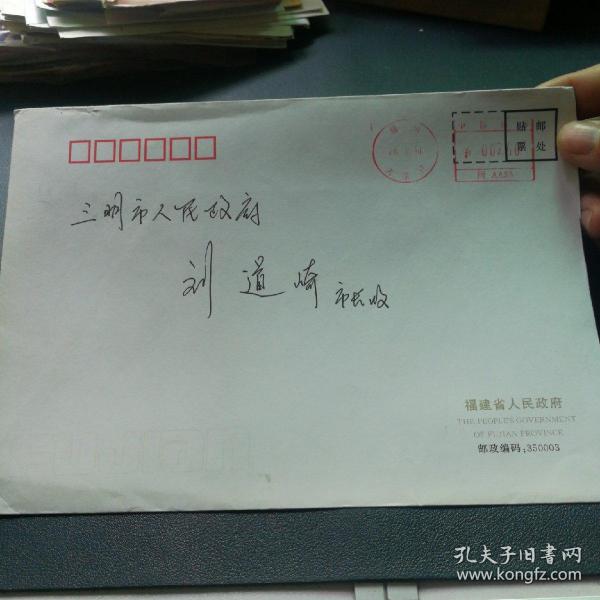 贴 邮
票 处
三明市人民政府
刘道崎 市长收
福建省人民政府
THE PEOPLE'S GOVERNMENT
OF FUJIAN PROVINCE
邮政编码:350003
孔夫子旧书网
www.kongfz.com